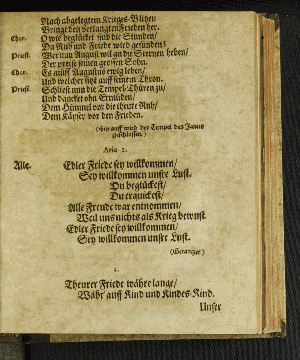 Nach abgelegtem Krieges-Blitzen
Bringt den verlangten Frieden her.
Chor. O wie beglücket sind die Stunden/
Da Ruh und Friede wird gefunden!
Priest. Wer nun August wil an die Sternen heben/
Der preise seinen grossen Sohn.
Chor. Es muß Augustus ewig leben/
Und welcher sitzt auff seinem Thron.
Priest. Schliest nun die Tempel-Thüren zu/
Und dancket ohn Ermüden/
Dem Himmel vor die theure Ruh/
Dem Käyser vor den Frieden.
(Hierauff wird der Tempel des Janus
geschlossen.)
Aria 1.
Alle. Edler Friede sey willkommen/
Sey willkommen unsre Lust.
Du beglückest/
Du erquickest/
Alle Freude war entnommen/
Weil uns nichts als Krieg bewust.
Edler Friede sey willkommen/
Sey willkommen unsre Lust.
2.
Theurer Friede währe lange/
Währ auff Kind und Kindes-Kind.
Unser